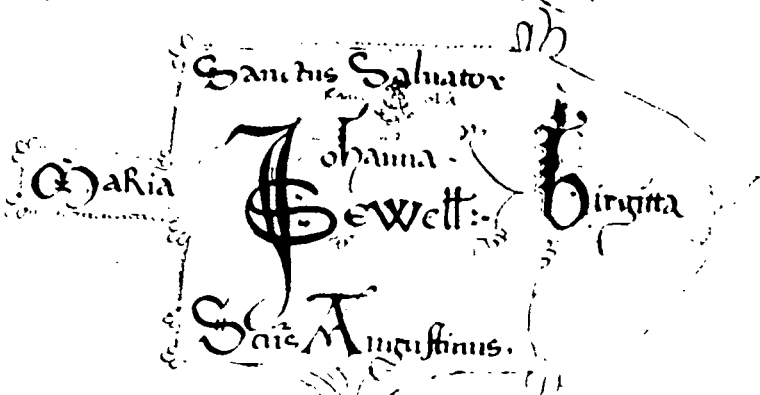 Sanctus Salvator
Johanna .
Maria
Sewell :-
birgitta
Scūs Augustinus .